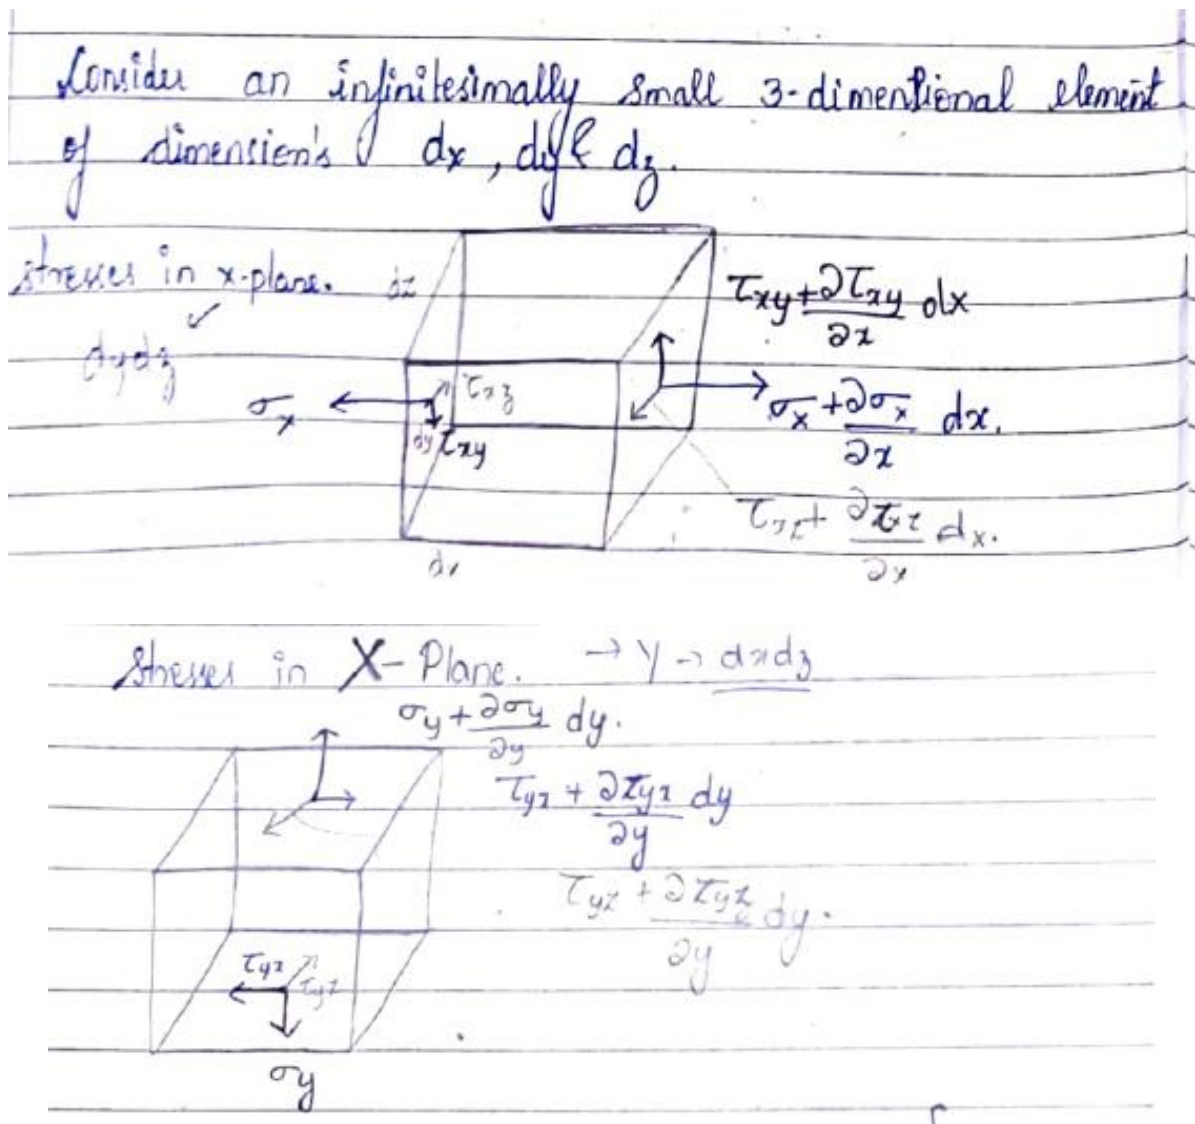 Consider an infinitesimally small 3-dimentional element
of dimension's dx, dy & dz.
stresses in x-plane.
dydz ✓
dz
τxy + ∂τxy/∂x dx
σx
τxz
dy
τxy
σx + ∂σx/∂x dx.
τxz + ∂τxz/∂x dx.
dx
Stresses in X-Plane. → Y → dxdz
σy + ∂σy/∂y dy.
τyx + ∂τyx/∂y dy
τyz + ∂τyz/∂y dy.
τyx
τyz
σy